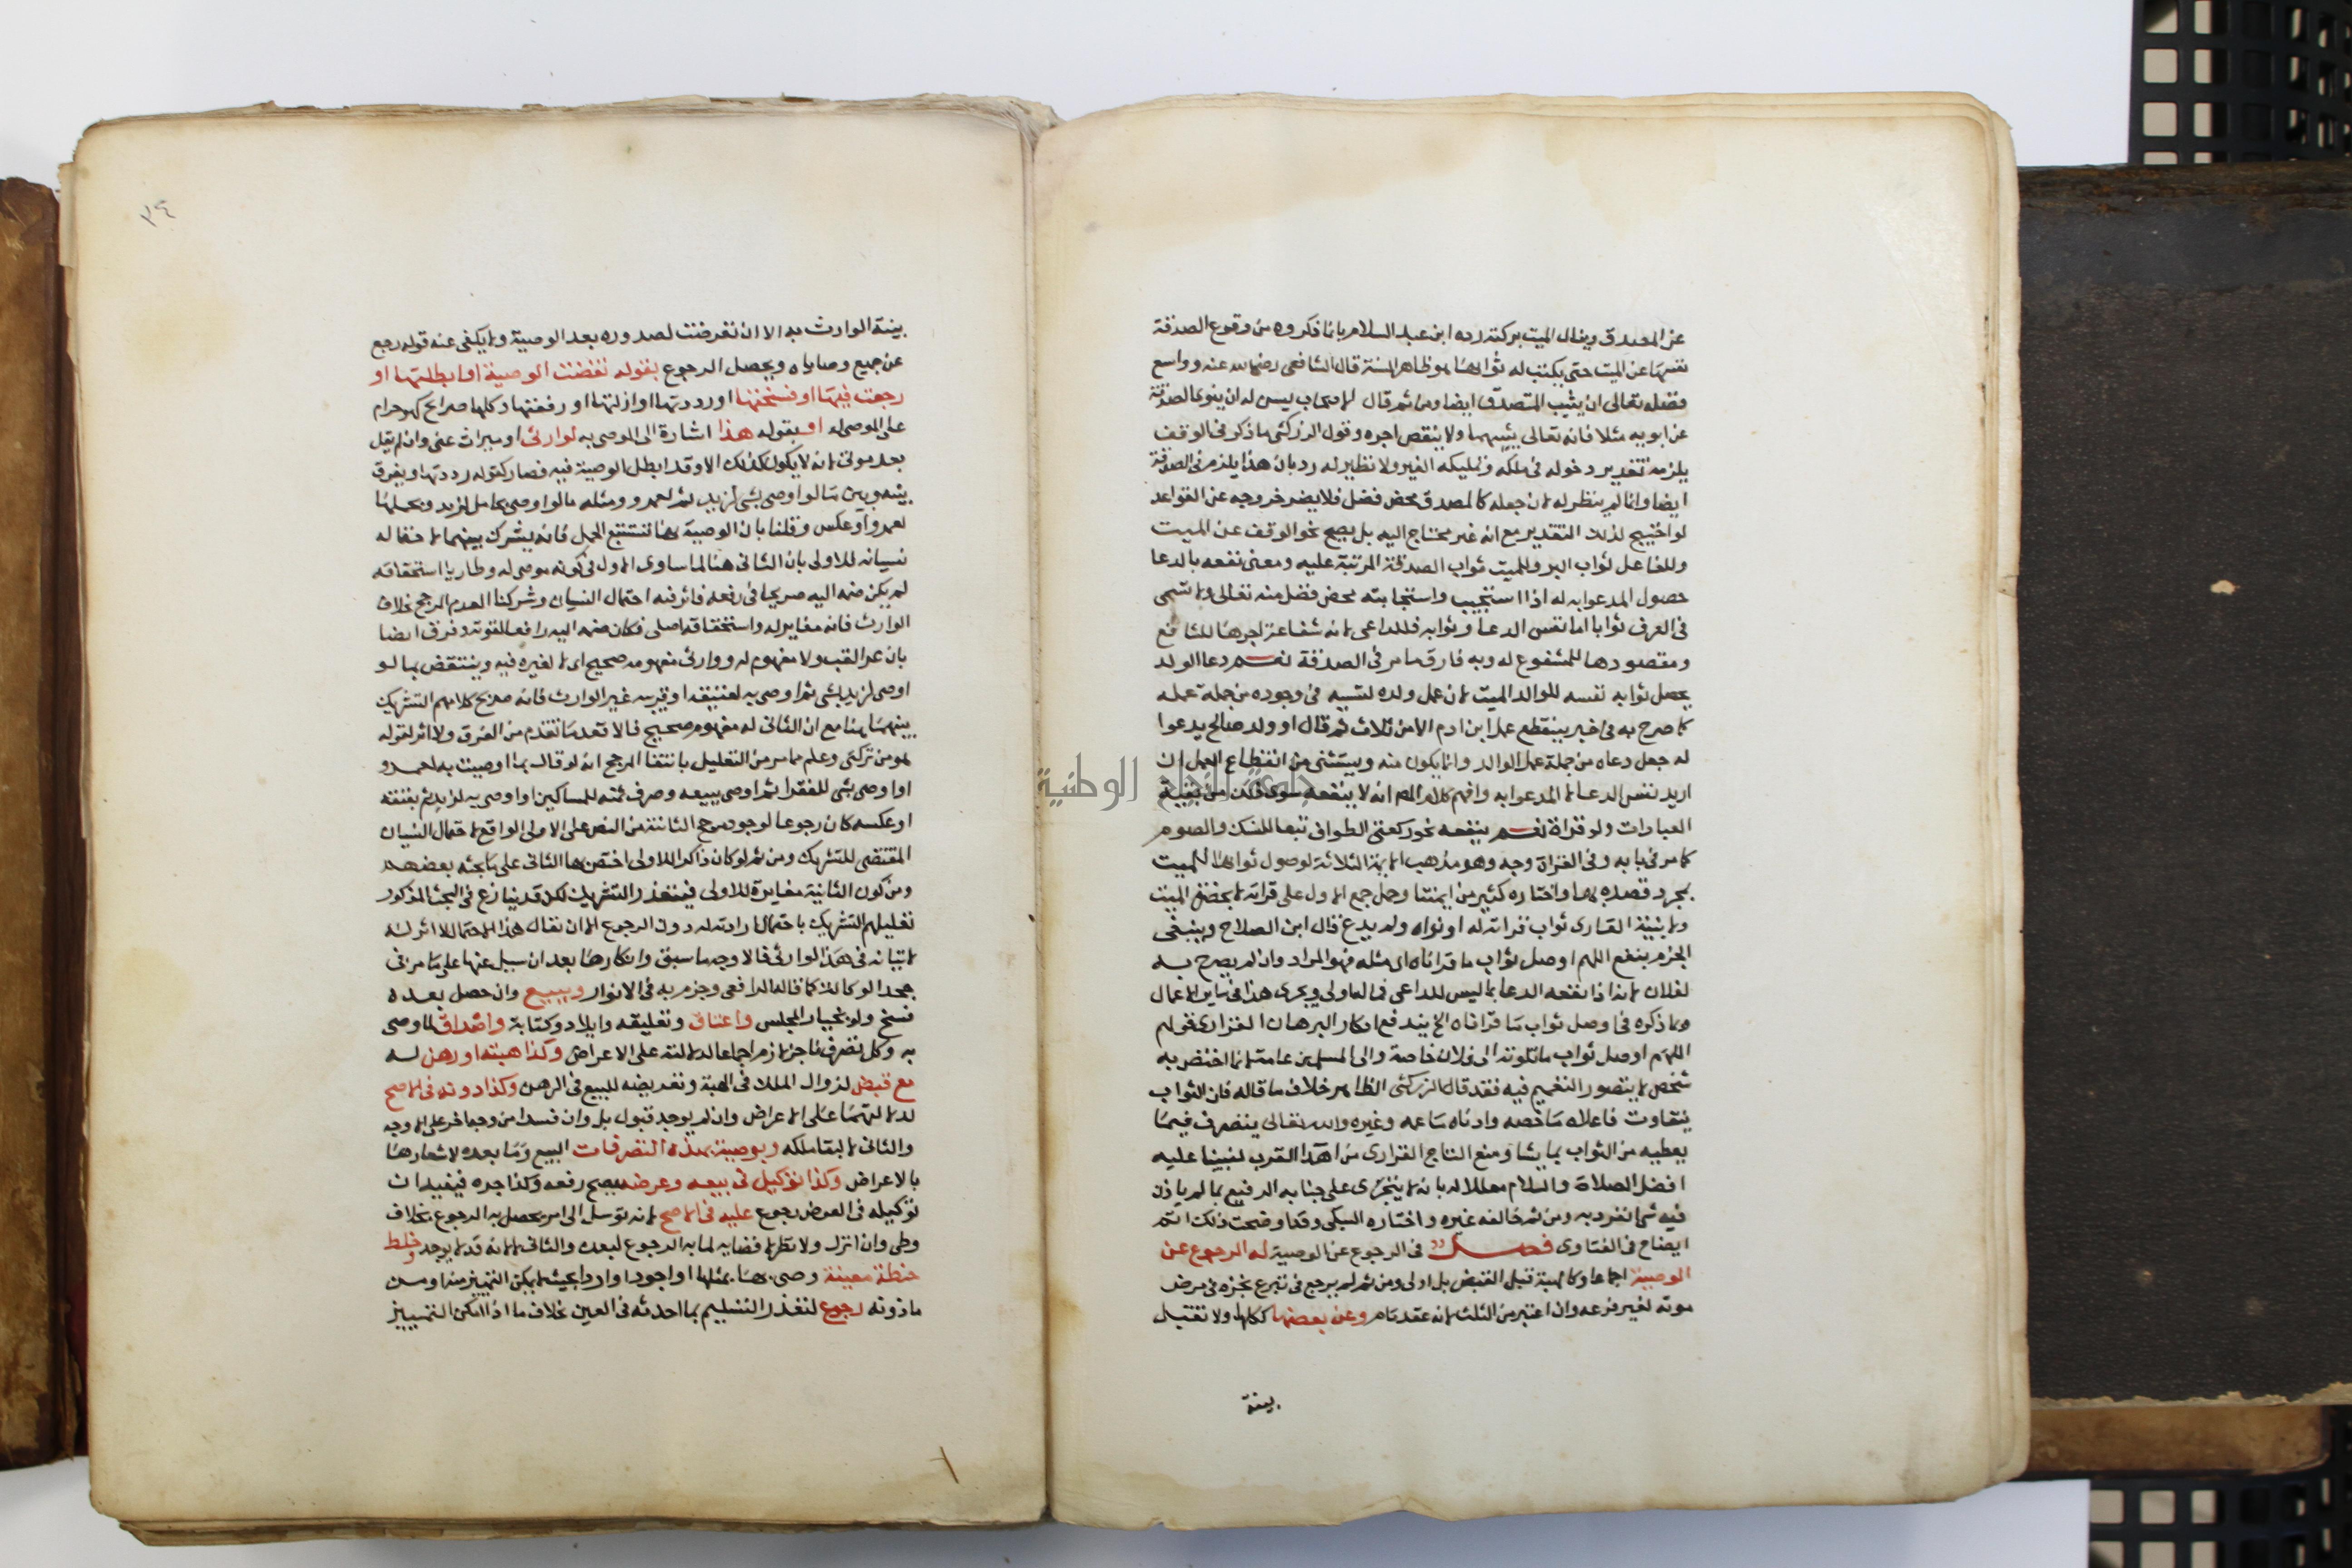 عن المصدق وينال الميت بركته رده ابن عبد السلام بان ما ذكروه من وقوع الصدقة
نفسها عن الميت حتى يكتب له ثوابها هو ظاهر السنة قال الشافعي رضي الله عنه وواسع
فضله تعالى ان يثيب المتصدق ايضا ومن ثم قال الاصحاب يسن له ان ينوي الصدقة
عن ابويه مثلا فانه تعالى يثيبهما ولا ينقص اجره وقول الزركشي ما ذكر في الوقف
يلزمه تقدير دخوله في ملكه وتمليكه الغير ولا نظير له رد بان هذا يلزم في الصدقة
ايضا وانما لم ينظر له لان جعله كالمصدق محض فضل فلا يضر خروجه عن القواعد
لو احتيج لذلك التقدير مع انه غير محتاج اليه بل يصح نحو الوقف عن الميت
وللفاعل ثواب البر وللميت ثواب الصدقة المرتبة عليه ومعنى نفعه بالدعا
حصول المدعو به له اذا استجيب واستجابته محض فضل منه تعالى ولا تسمى
في العرف ثوابا اما نفس الدعا وثوابه فللداعي لانه شفاعة اجرها للشافع
ومقصودها للمشفوع له وبه فارق ما مر في الصدقة نعم دعا الولد
يحصل ثوابه نفسه للوالد الميت لان عمل ولده لتسببه في وجوده من جملة عمله
كما صرح به في خبر ينقطع عمل ابن ادم الا من ثلاث ثم قال او ولد صالح يدعوا
له جعل دعاه من جملة عمل الوالد وانما يكون منه ويستثنى من انقطاع العمل ان
اريد نفس الدعا لا المدعو به وافهم كلام المص انه لا ينفعه سوى ذلك من بقية
العبادات ولو قراة نعم ينفعه نحو ركعتي الطواف تبعا للنسك والصوم
كما مر في بابه وفي القراة وجه وهو مذهب الايمة الثلاثة لوصول ثوابها للميت
بمجرد قصده بها واختاره كثير من ايمتنا وحمل جمع الاول على قراته لا بحضرة الميت
ولا بنية القارى ثواب قراته له او نواه ولم يدع قال ابن الصلاح وينبغي
الجزم بنفع اللهم اوصل ثواب ما قراناه اي مثله فهو المراد وان لم يصرح به
لفلان لانه اذا نفعه الدعا بما ليس للداعي فماله اولى ويجرى هذا في ساير الاعمال
وما ذكره في اوصل ثواب ما قراناه الخ يندفع انكار البرهان الفزاري قولهم
اللهم اوصل ثواب ما تلوته الى فلان خاصة والى المسلمين عامة لان ما اختص به
شخص لا يتصور التعميم فيه فقد قال الزركشي الظاهر خلاف ما قاله فان الثواب
يتفاوت فاعلاه ما خصه وادناه ما عمه وغيره والله تعالى يتصرف فيما
يعطيه من الثواب بما يشا ومنع التاج الفزارى من اهدا القرب لنبينا عليه
افضل الصلاة والسلام معللا له بانه لا يتجرى على جنابه الرفيع بما لم ياذن
فيه شي انفرد به ومن ثم خالفه غيره واختاره السبكي وقد اوضحت ذلك اتم
ايضاح في الفتاوى فصل في الرجوع عن الوصية له الرجوع عن
الوصية اجماعا وكالهبة قبل القبض بل اولى ومن ثم لم يرجع في تبرع نجزه في مرض
موته لغير فرعه وان اعتبر من الثلث لانه عقد تام وعن بعضها ككلها ولا تقبل
بينة
٣٤
بينة الوارث به الا ان تعرضت لصدوره بعد الوصية ولا يكفي عنه قوله رجع
عن جميع وصاياه ويحصل الرجوع بقوله نقضت الوصية او ابطلتها او
رجعت فيها او فسختها او رددتها او ازلتها او رفعتها وكلها صرايح كهو حرام
على الموصى له او بقوله هذا اشارة الى الموصى به لوارثى او ميراث عني وان لم يقل
بعد موتي لانه لا يكون كذلك الا وقد ابطل الوصية فيه فصار كقوله رددتها ويفرق
بينه وبين ما لو اوصى بشي لزيد ثم لعمرو ومثله ما لو اوصى بحامل لزيد وبحملها
لعمرو او عكس وقلنا بان الوصية بها تستتبع الحمل فانه يشرك بينهما لاحتماله
نسيانه للاولى بان الثاني هنا لما ساوى الاول في كونه موصى له وطاريا استحقاقه
لم يكن ضمه اليه صريحا في رفعه فاثر فيه احتمال النسيان وشركنا العدم المرجح بخلاف
الوارث فانه مغاير له واستحقاقه اصلى فكان ضمه اليه رافعا لقوته وفرق ايضا
بان عمرا لقب ولا مفهوم له ووارثي مفهومه صحيح اي لا لغيره فيه وينتقض بما لو
اوصى لزيد بشي ثم اوصى به لعتيقه او قريبه غير الوارث فانه صريح كلامهم التشريك
بينهما هنا مع ان الثاني له مفهوم صحيح فالاقعد ما تقدم من الفرق ولا اثر لقوله
هو من تركتي وعلم مما مر من التعليل بانتفا المرجح انه لو قال بما اوصيت به لعمرو
او اوصى بشي للفقرا ثم اوصى ببيعه وصرف ثمنه للمساكين او اوصى به لزيد ثم بعتقه
او عكسه كان رجوعا لوجود مرجح الثانية من النص على الاولى الواقع لاحتمال النسيان
المقتضى للتشريك ومن ثم لو كان ذاكرا للاولى اختص بها الثاني على ما بحثه بعضهم
ومن كون الثانية مغايرة للاولى فيتعذر التشريك لكن قد ينازع في البحث المذكور
تعليلهم التشريك باحتمال ارادته له دون الرجوع الا ان يقال هذا الاحتمال لا اثر له
لاتيانه في هذا لوارثي فالاوجه ما سبق وانكارها بعد ان سيل عنها على ما مر في
جحد الوكالة كما قاله الرافعي وجزم به في الانوار وببيع وان حصل بعده
فسخ ولو بخيار المجلس واعتاق وتعليقه وايلاد وكتابة واصداق لما وصى
به وكل تصرف ناجز لازم اجماعا لدلالته على الاعراض وكذا هبته او رهن له
مع قبض لزوال الملك في الهبة وتعريضه للبيع في الرهن وكذا دونه في الاصح
لدلالتهما على الاعراض وان لم يوجد قبول بل وان فسدا من وجه اخر على الاوجه
والثاني لا لبقا ملكه وبوصية بهذه التصرفات البيع وما بعده لاشعارها
بالاعراض وكذا توكيل في بيعه وعرضه يصح رفعه وكذا جره فيفيد ان
توكيله في العرض رجوع عليه في الاصح لانه توسل الى امر يحصل به الرجوع بخلاف
وطى وان انزل ولا نظر لافضايه لما به الرجوع لبعده والثاني لا لانه قد لا يوجد وخلط
حنطة معينة وصى بها بمثلها او اجود او اردا بحيث لا يمكن التمييز منه او من
ماذونه رجوع لتعذر التسليم بما احدثه في العين بخلاف ما اذا امكن التمييز
جامعة النجاح الوطنية